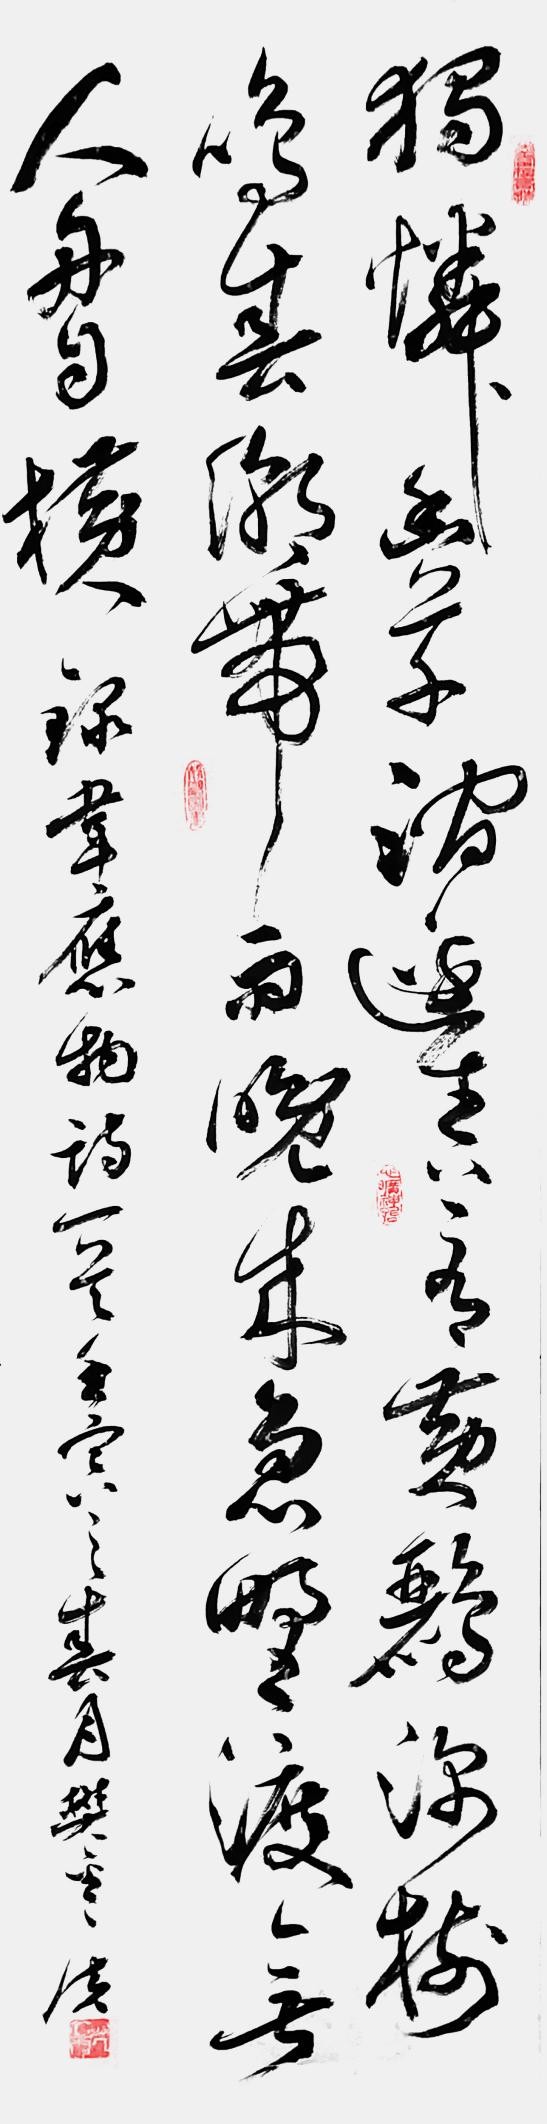 獨憐幽草澗邊生上有黃鸝深樹
鳴春潮帶雨晚來急野渡無
人舟自橫 錄韋應物詩一首壬寅之春月樊